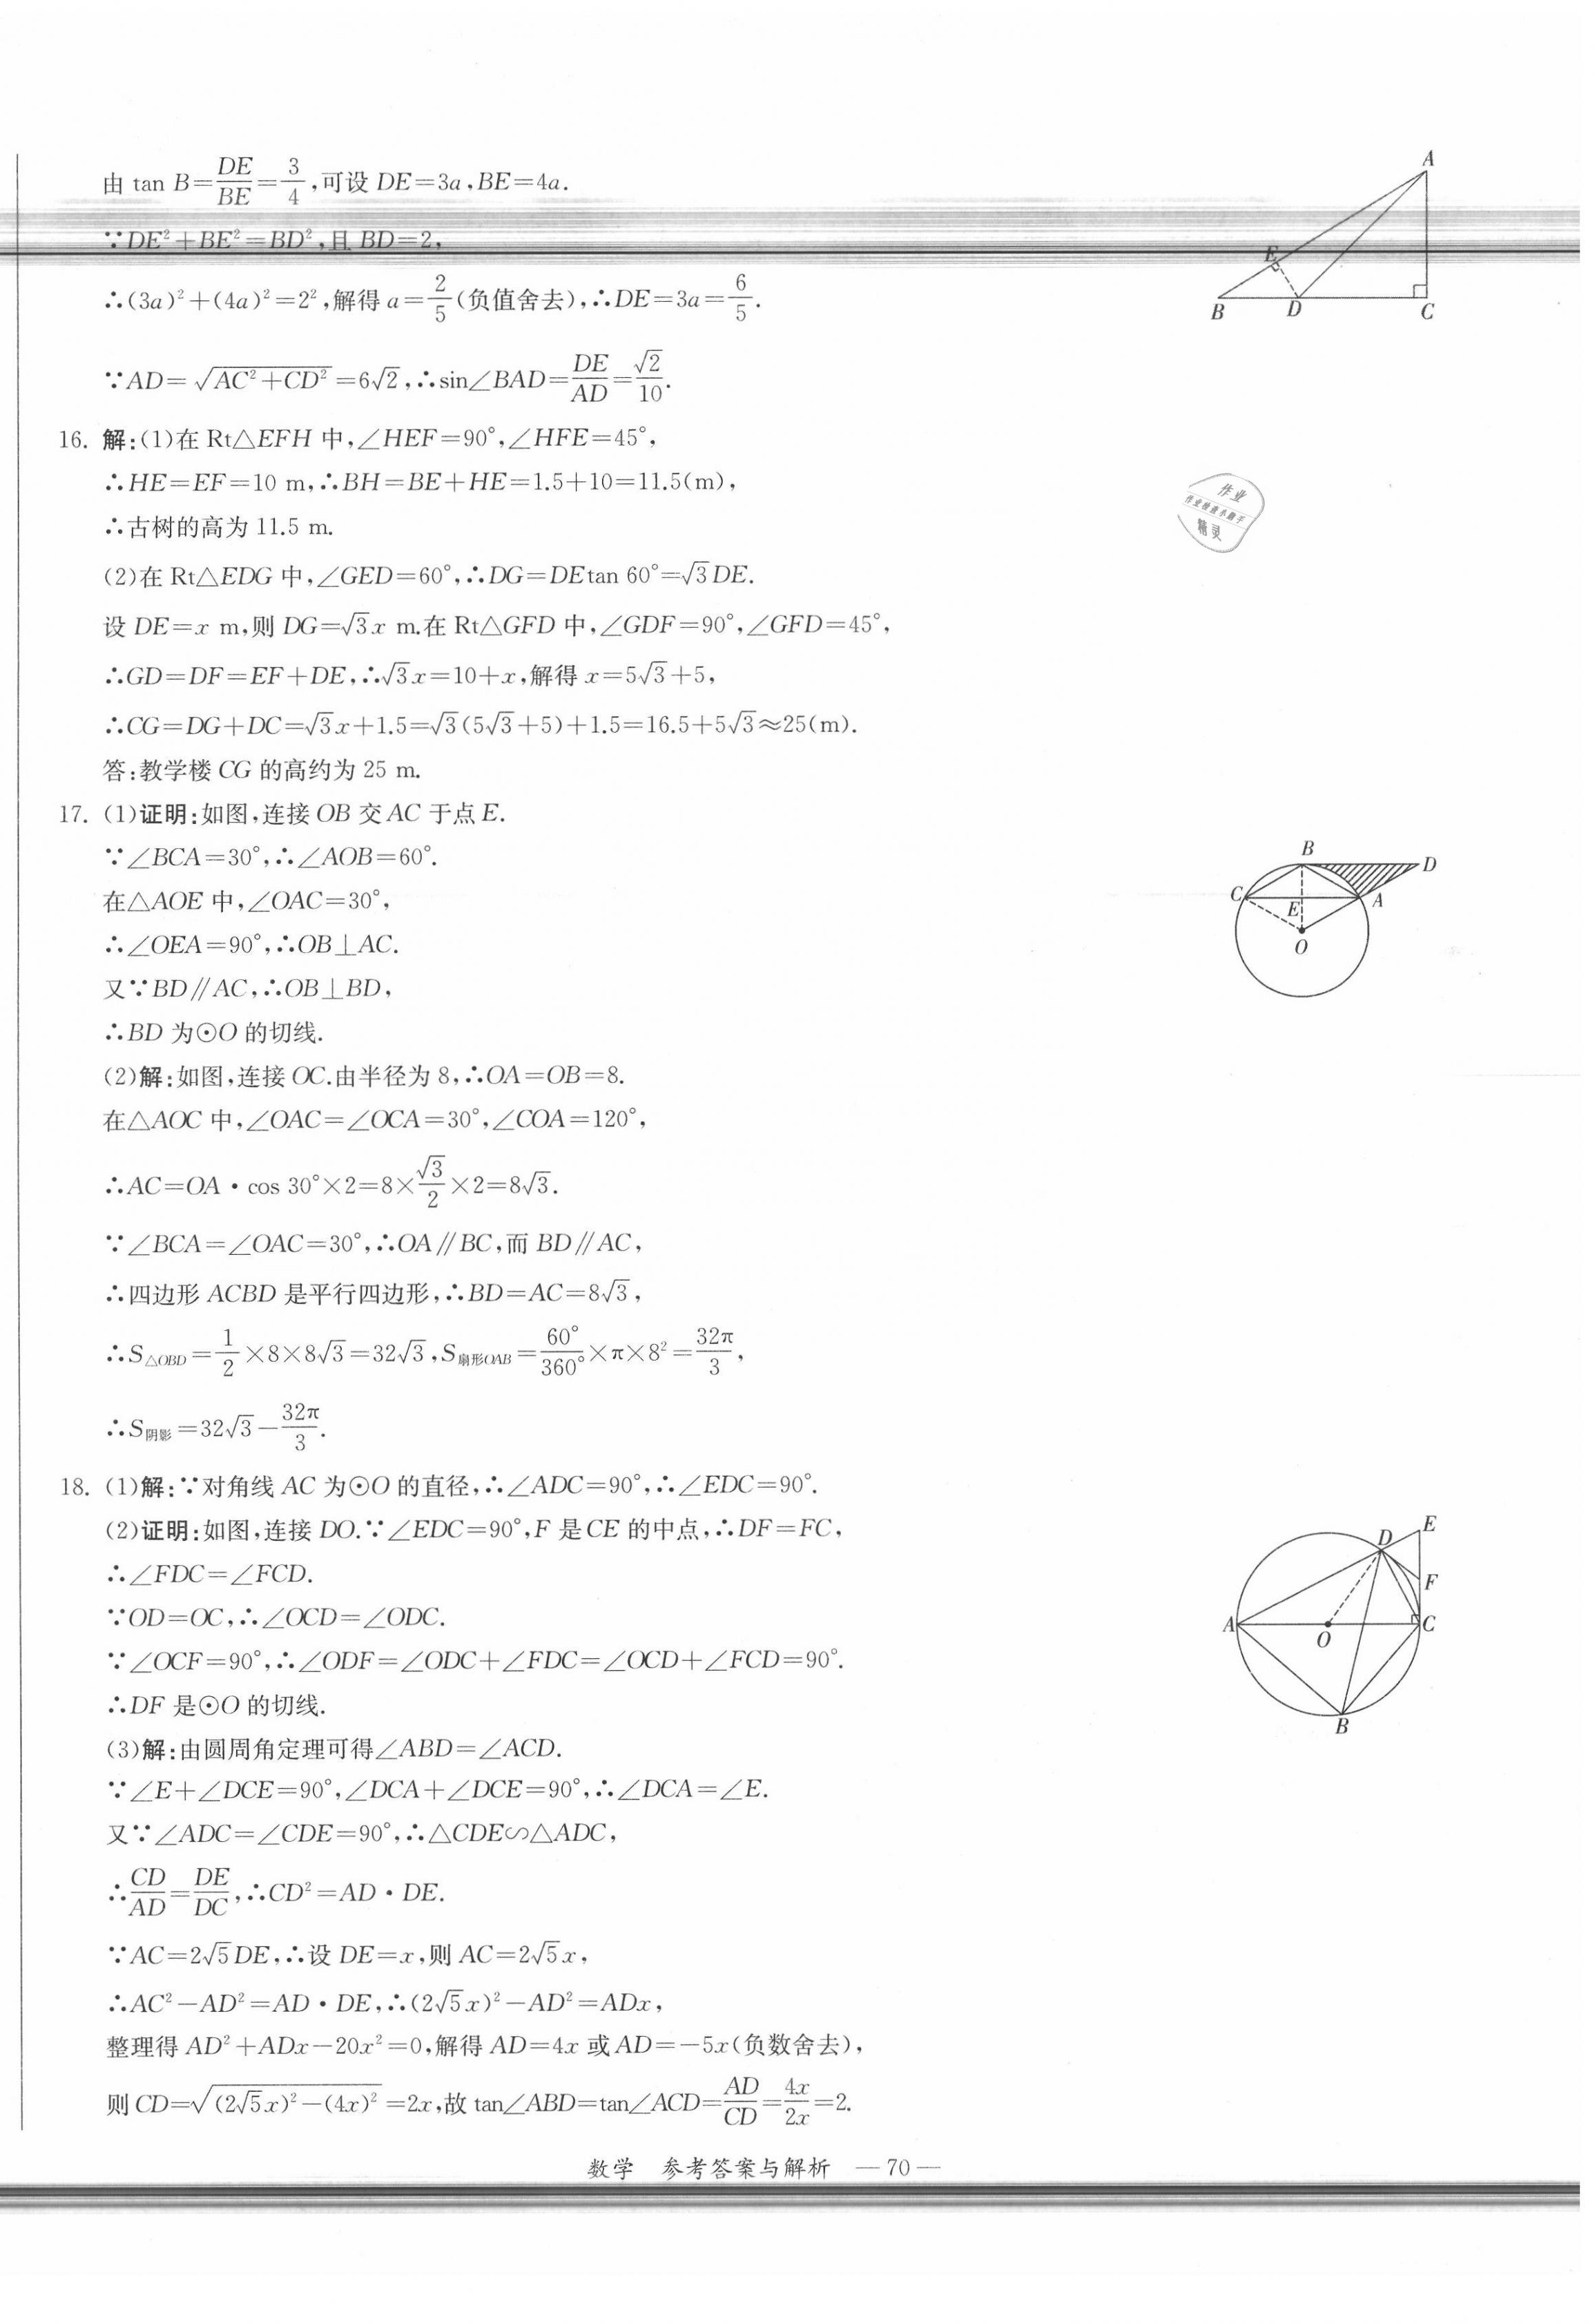 由 tan B=DE/BE=3/4,可设 DE=3a,BE=4a.
∵DE²+BE²=BD²,且 BD=2,
∴(3a)²+(4a)²=2²,解得 a=2/5(负值舍去),∴DE=3a=6/5.
∵AD=√(AC²+CD²)=6√2,∴sin∠BAD=DE/AD=√2/10.
A
E
B
D
C
16. 解:(1)在 Rt△EFH 中,∠HEF=90°,∠HFE=45°,
∴HE=EF=10 m,∴BH=BE+HE=1.5+10=11.5(m),
∴古树的高为 11.5 m.
(2)在 Rt△EDG 中,∠GED=60°,∴DG=DEtan 60°=√3DE.
设 DE=x m,则 DG=√3x m.在 Rt△GFD 中,∠GDF=90°,∠GFD=45°,
∴GD=DF=EF+DE,∴√3x=10+x,解得 x=5√3+5,
∴CG=DG+DC=√3x+1.5=√3(5√3+5)+1.5=16.5+5√3≈25(m).
答:教学楼 CG 的高约为 25 m.
作业
作业检查小助手
精灵
17. (1)证明:如图,连接 OB 交 AC 于点 E.
∵∠BCA=30°,∴∠AOB=60°.
在△AOE 中,∠OAC=30°,
∴∠OEA=90°,∴OB⊥AC.
又∵BD∥AC,∴OB⊥BD,
∴BD 为⊙O 的切线.
(2)解:如图,连接 OC.由半径为 8,∴OA=OB=8.
在△AOC 中,∠OAC=∠OCA=30°,∠COA=120°,
∴AC=OA·cos 30°×2=8×√3/2×2=8√3.
∵∠BCA=∠OAC=30°,∴OA∥BC,而 BD∥AC,
∴四边形 ACBD 是平行四边形,∴BD=AC=8√3,
∴S△OBD=1/2×8×8√3=32√3,S扇形OAB=60°/360°×π×8²=32π/3,
∴S阴影=32√3−32π/3.
B
D
C
E
A
O
18. (1)解:∵对角线 AC 为⊙O 的直径,∴∠ADC=90°,∴∠EDC=90°.
(2)证明:如图,连接 DO.∵∠EDC=90°,F 是 CE 的中点,∴DF=FC,
∴∠FDC=∠FCD.
∵OD=OC,∴∠OCD=∠ODC.
∵∠OCF=90°,∴∠ODF=∠ODC+∠FDC=∠OCD+∠FCD=90°.
∴DF 是⊙O 的切线.
(3)解:由圆周角定理可得∠ABD=∠ACD.
∵∠E+∠DCE=90°,∠DCA+∠DCE=90°,∴∠DCA=∠E.
又∵∠ADC=∠CDE=90°,∴△CDE∽△ADC,
∴CD/AD=DE/DC,∴CD²=AD·DE.
∵AC=2√5DE,∴设 DE=x,则 AC=2√5x,
∴AC²−AD²=AD·DE,∴(2√5x)²−AD²=ADx,
整理得 AD²+ADx−20x²=0,解得 AD=4x 或 AD=−5x(负数舍去),
则 CD=√((2√5x)²−(4x)²)=2x,故 tan∠ABD=tan∠ACD=AD/CD=4x/2x=2.
D
E
F
A
O
C
B
数学 参考答案与解析 — 70 —